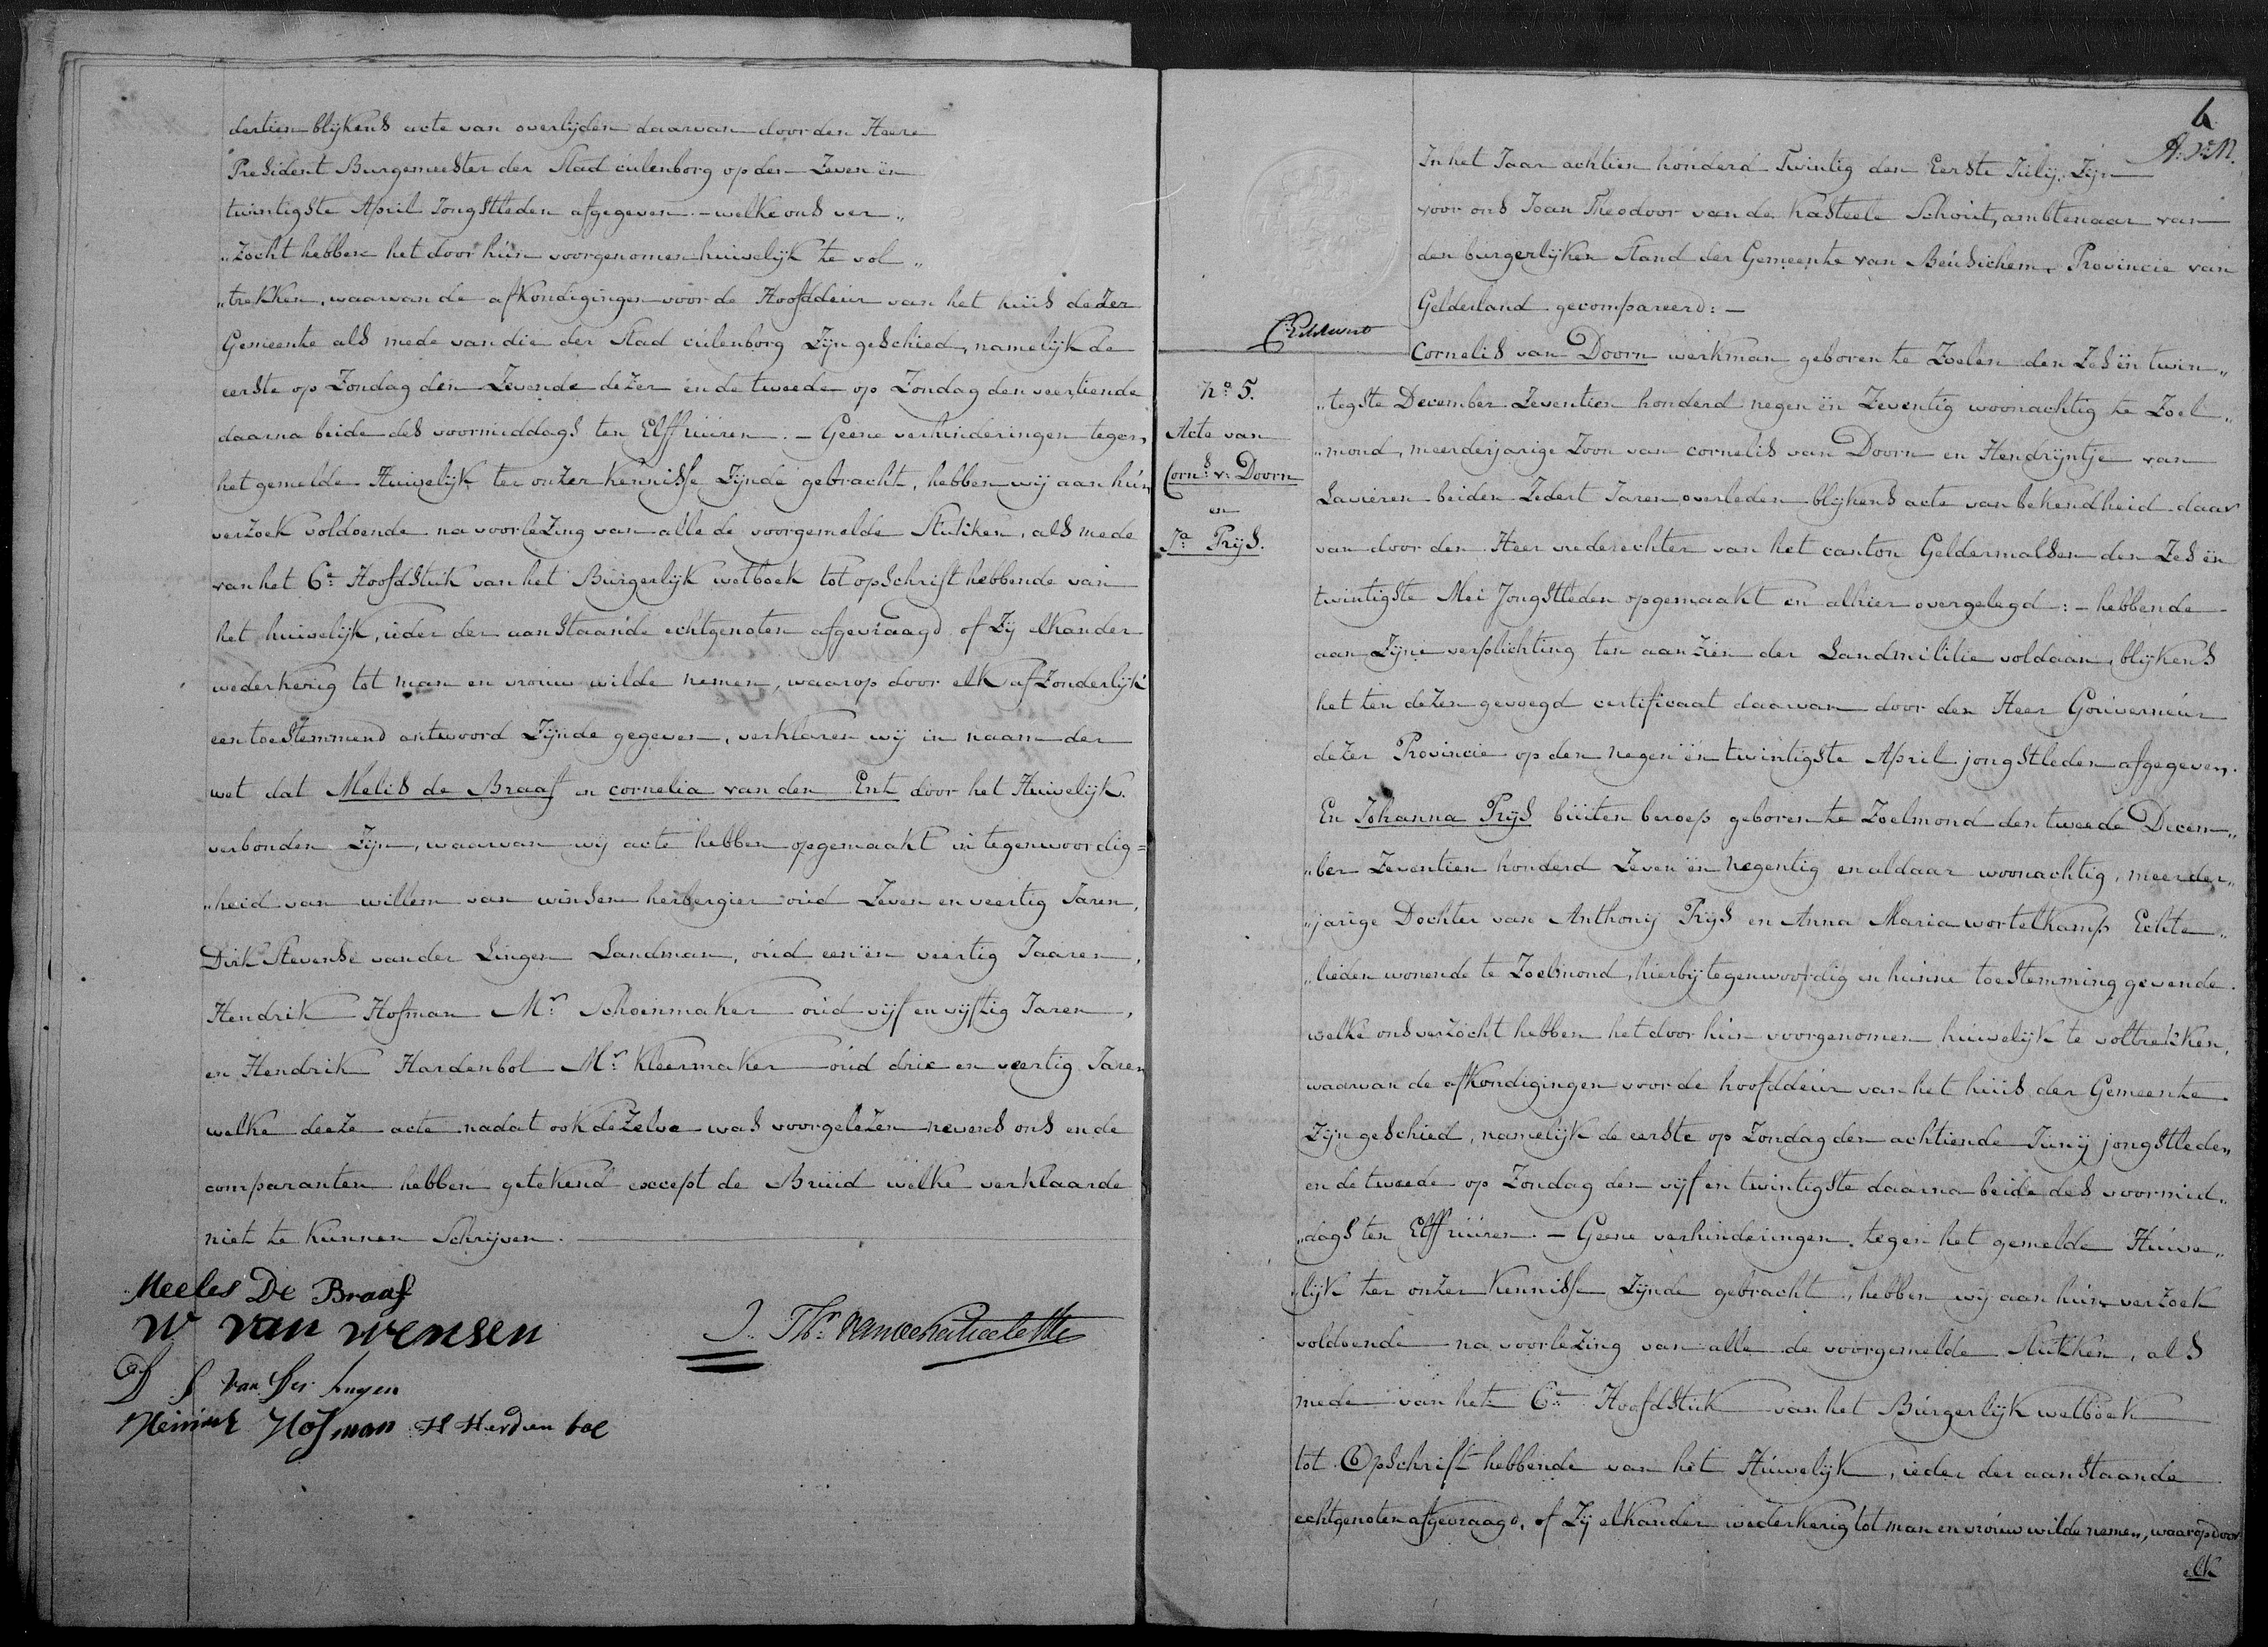 dertien blijkens acte van overlijden daarvan door den Heere
President Burgemeester der Stad culenborg op den Zeven ën
twintigste April Jongstleden afgegeven. – welke ons ver„
„zocht hebben het door hún voorgenomen huiwelijk te vol„
„trekken, waarvan de afkondigingen voor de Hoofddeur van het húis dezer
Gemeente als mede van die der Stad culenborg Zijn geschied, namelijk de
eerste op Zondag den Zevende dezer en de tweede op Zondag den veertiende
daarna beide des voormiddags ten Elff uuren. – Geene verhinderingen tegen
het gemelde Huiwelijk ter onzer kennisse Zijnde gebracht, hebben wij aan hún
verzoek voldoende na voorlezing van alle de voorgemelde Stukken, als mede
van het 6e Hoofdstuk van het Burgerlijk wetboek tot opschrift hebbende van
het huiwelijk, ieder der aanstaande echtgenoten afgevraagd of Zij elkander
wederkerig tot man en vrouw wilde nemen, waarop door elk afzonderlijk
een toestemmend antwoord Zijnde gegeven, verklaren wij in naam der
wet dat Melis de Braaf en cornelia van den Ent door het Huiwelijk
verbonden Zijn, waarvan wij acte hebben opgemaakt in tegenwoordig=
„heid van willem van winsen herbergier oud Zeven en veertig Jaren,
Dirk Stevense van der Lingen Landman, oud een ën veertig Jaaren,
Hendrik Hofman Mr Schoenmaker oud vijf en vijftig Jaren,
en Hendrik Hardenbol Mr Kleermaker oud drie en veertig Jaren
welke deeze acte nadat ook dezelve was voorgelezen nevens ons en de
comparanten hebben getekend except de Bruid welke verklaarde
niet te kunnen Schrijven.
Meeles De Braaf
W van wensen
J. Th. van de Kasteele
D S van der Lingen
Hofman H Herdenbol
6
In het Jaar achtien honderd Twintig den Eerste Julij Zijn
voor ons Joan Theodoor van de Kasteele Schout, ambtenaar van
den burgerlijken Stand der Gemeente van Beusichem, Provincie van
Gelderland gecompareerd: –
Cornelis van Doorn werkman geboren te Zoelen den Zes ën twin„
„tegste December Zeventien honderd negen ën Zeventig woonachtig te Zoel„
„mond, meerderjarige Zoon van cornelis van Doorn en Hendrijntje van
Lavieren beiden Zedert Jaren overleden blijkens acte van bekendheid daar
van door den Heer vrederechter van het canton Geldermalsen den Zes ën
twintigste Mei Jongstleden opgemaakt en alhier overgelegd: – hebbende
aan Zijne verplichting ten aanzien der Landmilitie voldaan, blijkens
het ten dezen gevoegd certificaat daarvan door den Heer Gouverneur
dezer Provincie op den negen ën twintigste April jongstleden afgegeven.
En Johanna Prijs buiten beroep geboren te Zoelmond den tweede Decem„
„ber Zeventien honderd Zeven ën negentig en aldaar woonachtig, meerder„
„jarige Dochter van Anthonij Prijs en Anna Maria wortelkamp Echte„
„lieden wonende te Zoelmond, hierbij tegenwoordig en húnne toestemming gevende.
welke ons verzocht hebben het door hún voorgenomen huiwelijk te voltrekken,
waarvan de afkondigingen voor de hoofddeur van het húis der Gemeente
Zijn geschied, namelijk de eerste op Zondag den achtiende Junij jongstleden
en de tweede op Zondag den vijf en twintigste daarna beide des voormid„
„dags ten Elff uuren. – Geene verhinderingen tegen het gemelde Huwe„
„lijk ter onzer Kennisse Zijnde gebracht, hebben wij aan hún verzoek
voldoende na voorlezing van alle de voorgemelde Stukken, als
mede van het 6e Hoofdstuk van het Burgerlijk wetboek
tot Opschrift hebbende van het Huwelijk, ieder der aanstaande
echtgenoten afgevraagd, of Zij elkander wederkerig tot man en vrouw wilde nemen, waarop door
elk
No 5.
Acte van
Corns v. Doorn
en
Ja Prijs.